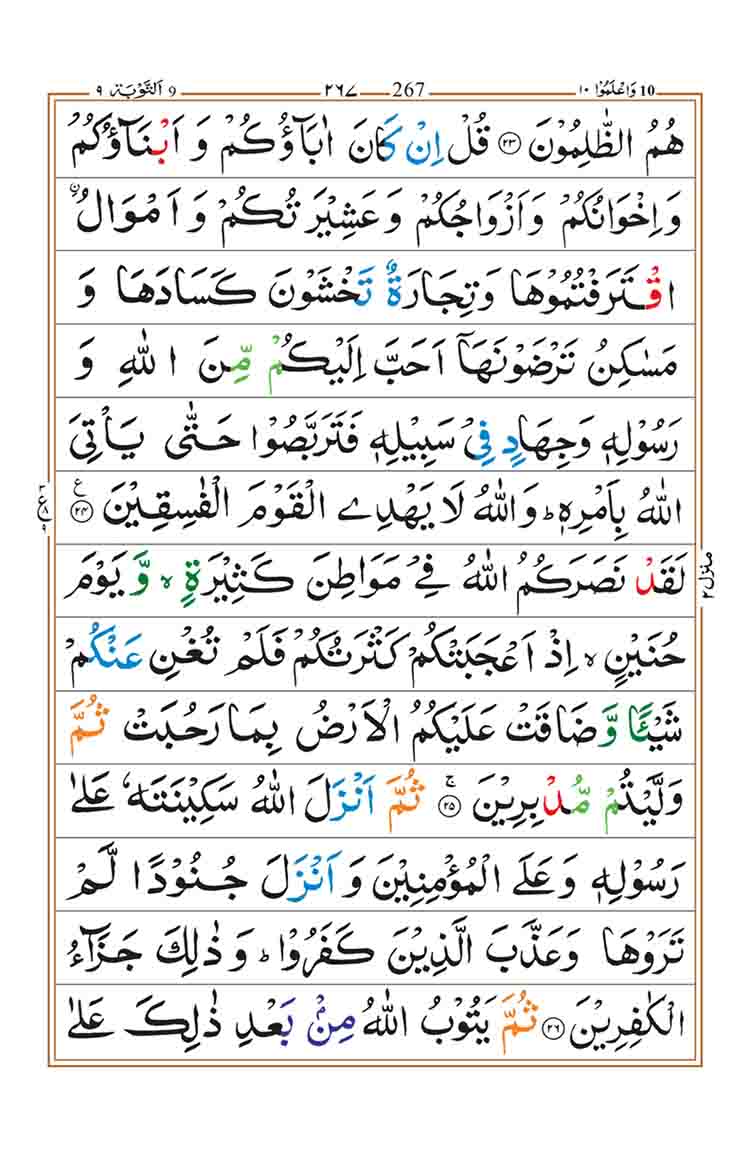 9 اَلتَّوْبَة ٩ 267 ٢٦٧ 10 وَاعْلَمُوْا ١٠
هُمُ الظّٰلِمُوْنَ ۝٢٣ قُلْ اِنْ كَانَ اٰبَآؤُكُمْ وَ اَبْنَآؤُكُمْ
وَاِخْوَانُكُمْ وَاَزْوَاجُكُمْ وَعَشِيْرَتُكُمْ وَ اَمْوَالُۨ
اقْتَرَفْتُمُوْهَا وَتِجَارَةٌ تَخْشَوْنَ كَسَادَهَا وَ
مَسٰكِنُ تَرْضَوْنَهَاۤ اَحَبَّ اِلَيْكُمْ مِّنَ اللّٰهِ وَ
رَسُوْلِهٖ وَجِهَادٍ فِيْ سَبِيْلِهٖ فَتَرَبَّصُوْا حَتّٰى يَاْتِيَ
اللّٰهُ بِاَمْرِهٖؕ وَاللّٰهُ لَا يَهْدِے الْقَوْمَ الْفٰسِقِيْنَ ۝٢٤ ع
٣ ع ٨ ٩
لَقَدْ نَصَرَكُمُ اللّٰهُ فِيْ مَوَاطِنَ كَثِيْرَةٍ ۙ وَّ يَوْمَ
منزل ٢
حُنَيْنٍ ۙ اِذْ اَعْجَبَتْكُمْ كَثْرَتُكُمْ فَلَمْ تُغْنِ عَنْكُمْ
شَيْـًٔا وَّ ضَاقَتْ عَلَيْكُمُ الْاَرْضُ بِمَا رَحُبَتْ ثُمَّ
وَلَّيْتُمْ مُّدْبِرِيْنَ ۝٢٥ ج ثُمَّ اَنْزَلَ اللّٰهُ سَكِيْنَتَهٗ عَلٰى
رَسُوْلِهٖ وَعَلَى الْمُؤْمِنِيْنَ وَ اَنْزَلَ جُنُوْدًا لَّمْ
تَرَوْهَا وَعَذَّبَ الَّذِيْنَ كَفَرُوْاؕ وَ ذٰلِكَ جَزَآءُ
الْكٰفِرِيْنَ ۝٢٦ ثُمَّ يَتُوْبُ اللّٰهُ مِنْۢ بَعْدِ ذٰلِكَ عَلٰى